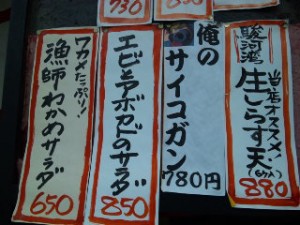 730
850
駿河湾
当店オススメ!
生しらす天(6ヶ入)
880
俺の
サイコガン
780円
エビとアボカドのサラダ
850
ワカメたっぷり!
漁師わかめサラダ
650